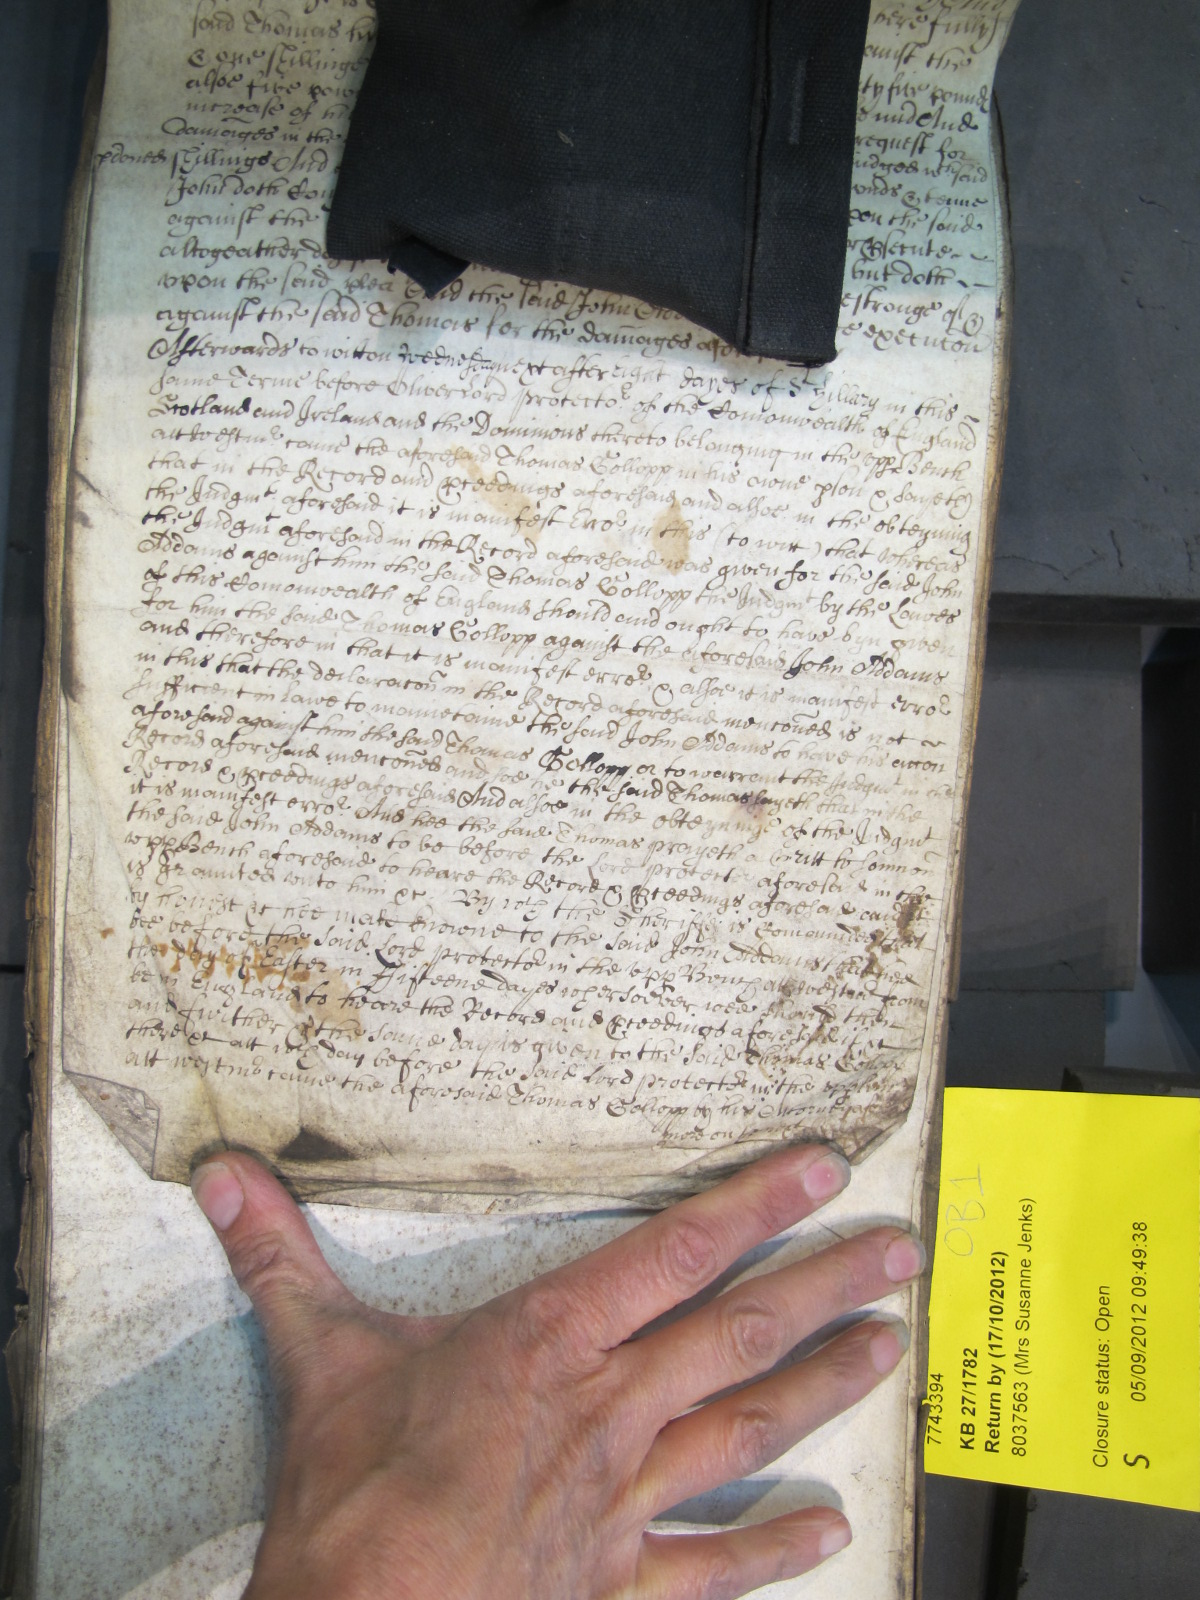 said Thomas
here fully
& one shillinge
against the
alsoe five
ty five pounds
increase of
and And
Damages in the
request for
pdoned shillings And
said
John doth
& tenne
against the
on the said
altogeather
but doth
upon the said plea And the said John
against the said Thomas for the damages
execucon
Afterwards to witt on Wednesday next after eight dayes of St Hillary in this
same Terme before Oliver Lord Protector of the Comonwealth of England
Scotland and Ireland and the Dominions thereto belonging in the upp Bench
att Westmr came the aforesaid Thomas Gollopp in his owne pson & sayeth
that in the Record and pceedings aforesaid and alsoe in the obteyning
the Judgmt aforesaid it is manifest Error in this (to witt) that whereas
the Judgmt aforesaid in the Record aforesaid was given for the said John
Addams against him the said Thomas Gollopp the Judgmt by the Lawes
of this Comonwealth of England should and ought to have byn given
for him the said Thomas Gollopp against the aforesaid John Addams
and therefore in that it is manifest error & alsoe it is manifest error
in this that the declaracon in the Record aforesaid menconed is not
sufficient in Lawe to mainetaine the said John Addams to have his accon
aforesaid against him the said Thomas Gollopp or to warrant the Judgmt in the
Record aforesaid menconed and soe he the said Thomas sayeth that in the
Record & pceedings aforesaid And alsoe in the obteyninge of the Judgmt
it is manifest error And hee the said Thomas prayeth a writt to somon
the said John Addams to be before the Lord protector aforesaid in the
upp Bench aforesaid to heare the Record & pceedings aforesaid and it
is graunted unto him &c By wch the Sheriffe is Comaunded that
by honest &c hee make knowne to the said John Addams that hee
bee before the said Lord protector in the upp Bench att Westmr from
the day of Easter in Fifteene dayes wheresoever wee should then
be in England to heare the Record and pceedings aforesaid if &c
and further &c the same day is given to the said Thomas Gollopp
there &c att wch day before the said Lord protector in the upp Bench
att Westmr came the aforesaid Thomas Gollopp by his Attorney
more on
7743394
KB 27/1782
OB1
Return by (17/10/2012)
8037563 (Mrs Susanne Jenks)
Closure status: Open
S 05/09/2012 09:49:38